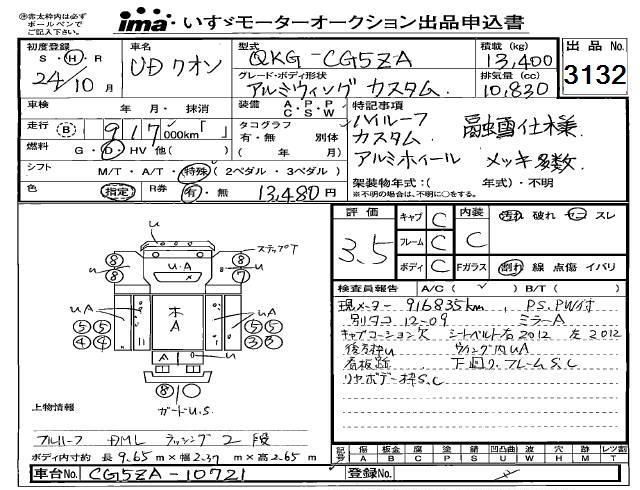 ㊟赤太枠内は必ず
ボールペンで
ご記入下さい。
ima いすゞモーターオークション出品申込書
初度登録 S・H・R 24/10月
車名 UD クオン
型式 QKG-CG5ZA
積載 (kg) 13,400
グレード・ボディ形状 アルミウィング カスタム.
排気量 (cc) 10,830
出品No. 3132
車検 年 月・抹消
装備 A・P・P C S W
走行 B 917,000km「 」
タコグラフ 有・無 別体 ( 年 月)
燃料 G・D・HV 他( )
シフト M/T・A/T・特殊 (2ペダル・3ペダル)
色 指定 R券 有・無 13,480円
特記事項
ハイルーフ 融雪仕様
カスタム
アルミホイール メッキ多数
架装物年式:( 年式)・不明
※不明の場合は、不明に○をする。
評価 3.5
キャブ C
フレーム C
ボディ C
内装 C
汚れ 破れ コゲ スレ
Fガラス 割れ 線 点傷 イバリ
検査員報告 A/C( ✓ ) B/T( )
現メーター 916835km, P.S.PW付
別タコ 12-09 ミラーA
キャブコーション欠 シートベルト右2012 左2012
後方枠u ウィング内uA
看板跡 下廻り.フレームS.C
リヤボデー枠S.C
u
ステップT
⑧ ⑧ u
⑧ u U・A ⑦
uA 木 A uA
⑤⑤ ⑤⑤
④④ ③③
u A
⑧
ガードU.S
上物情報
フルハーフ DML ラッシング2段
ボディ内寸約 長 9.65m×幅 2.37m×高 2.65m
記号 傷 A 板金 B 腐 C 塗 P 錆 S 凹凸曲 U 波 W 穴 H 跡 M レツ割 T
車台No. CG5ZA-10721
登録No.